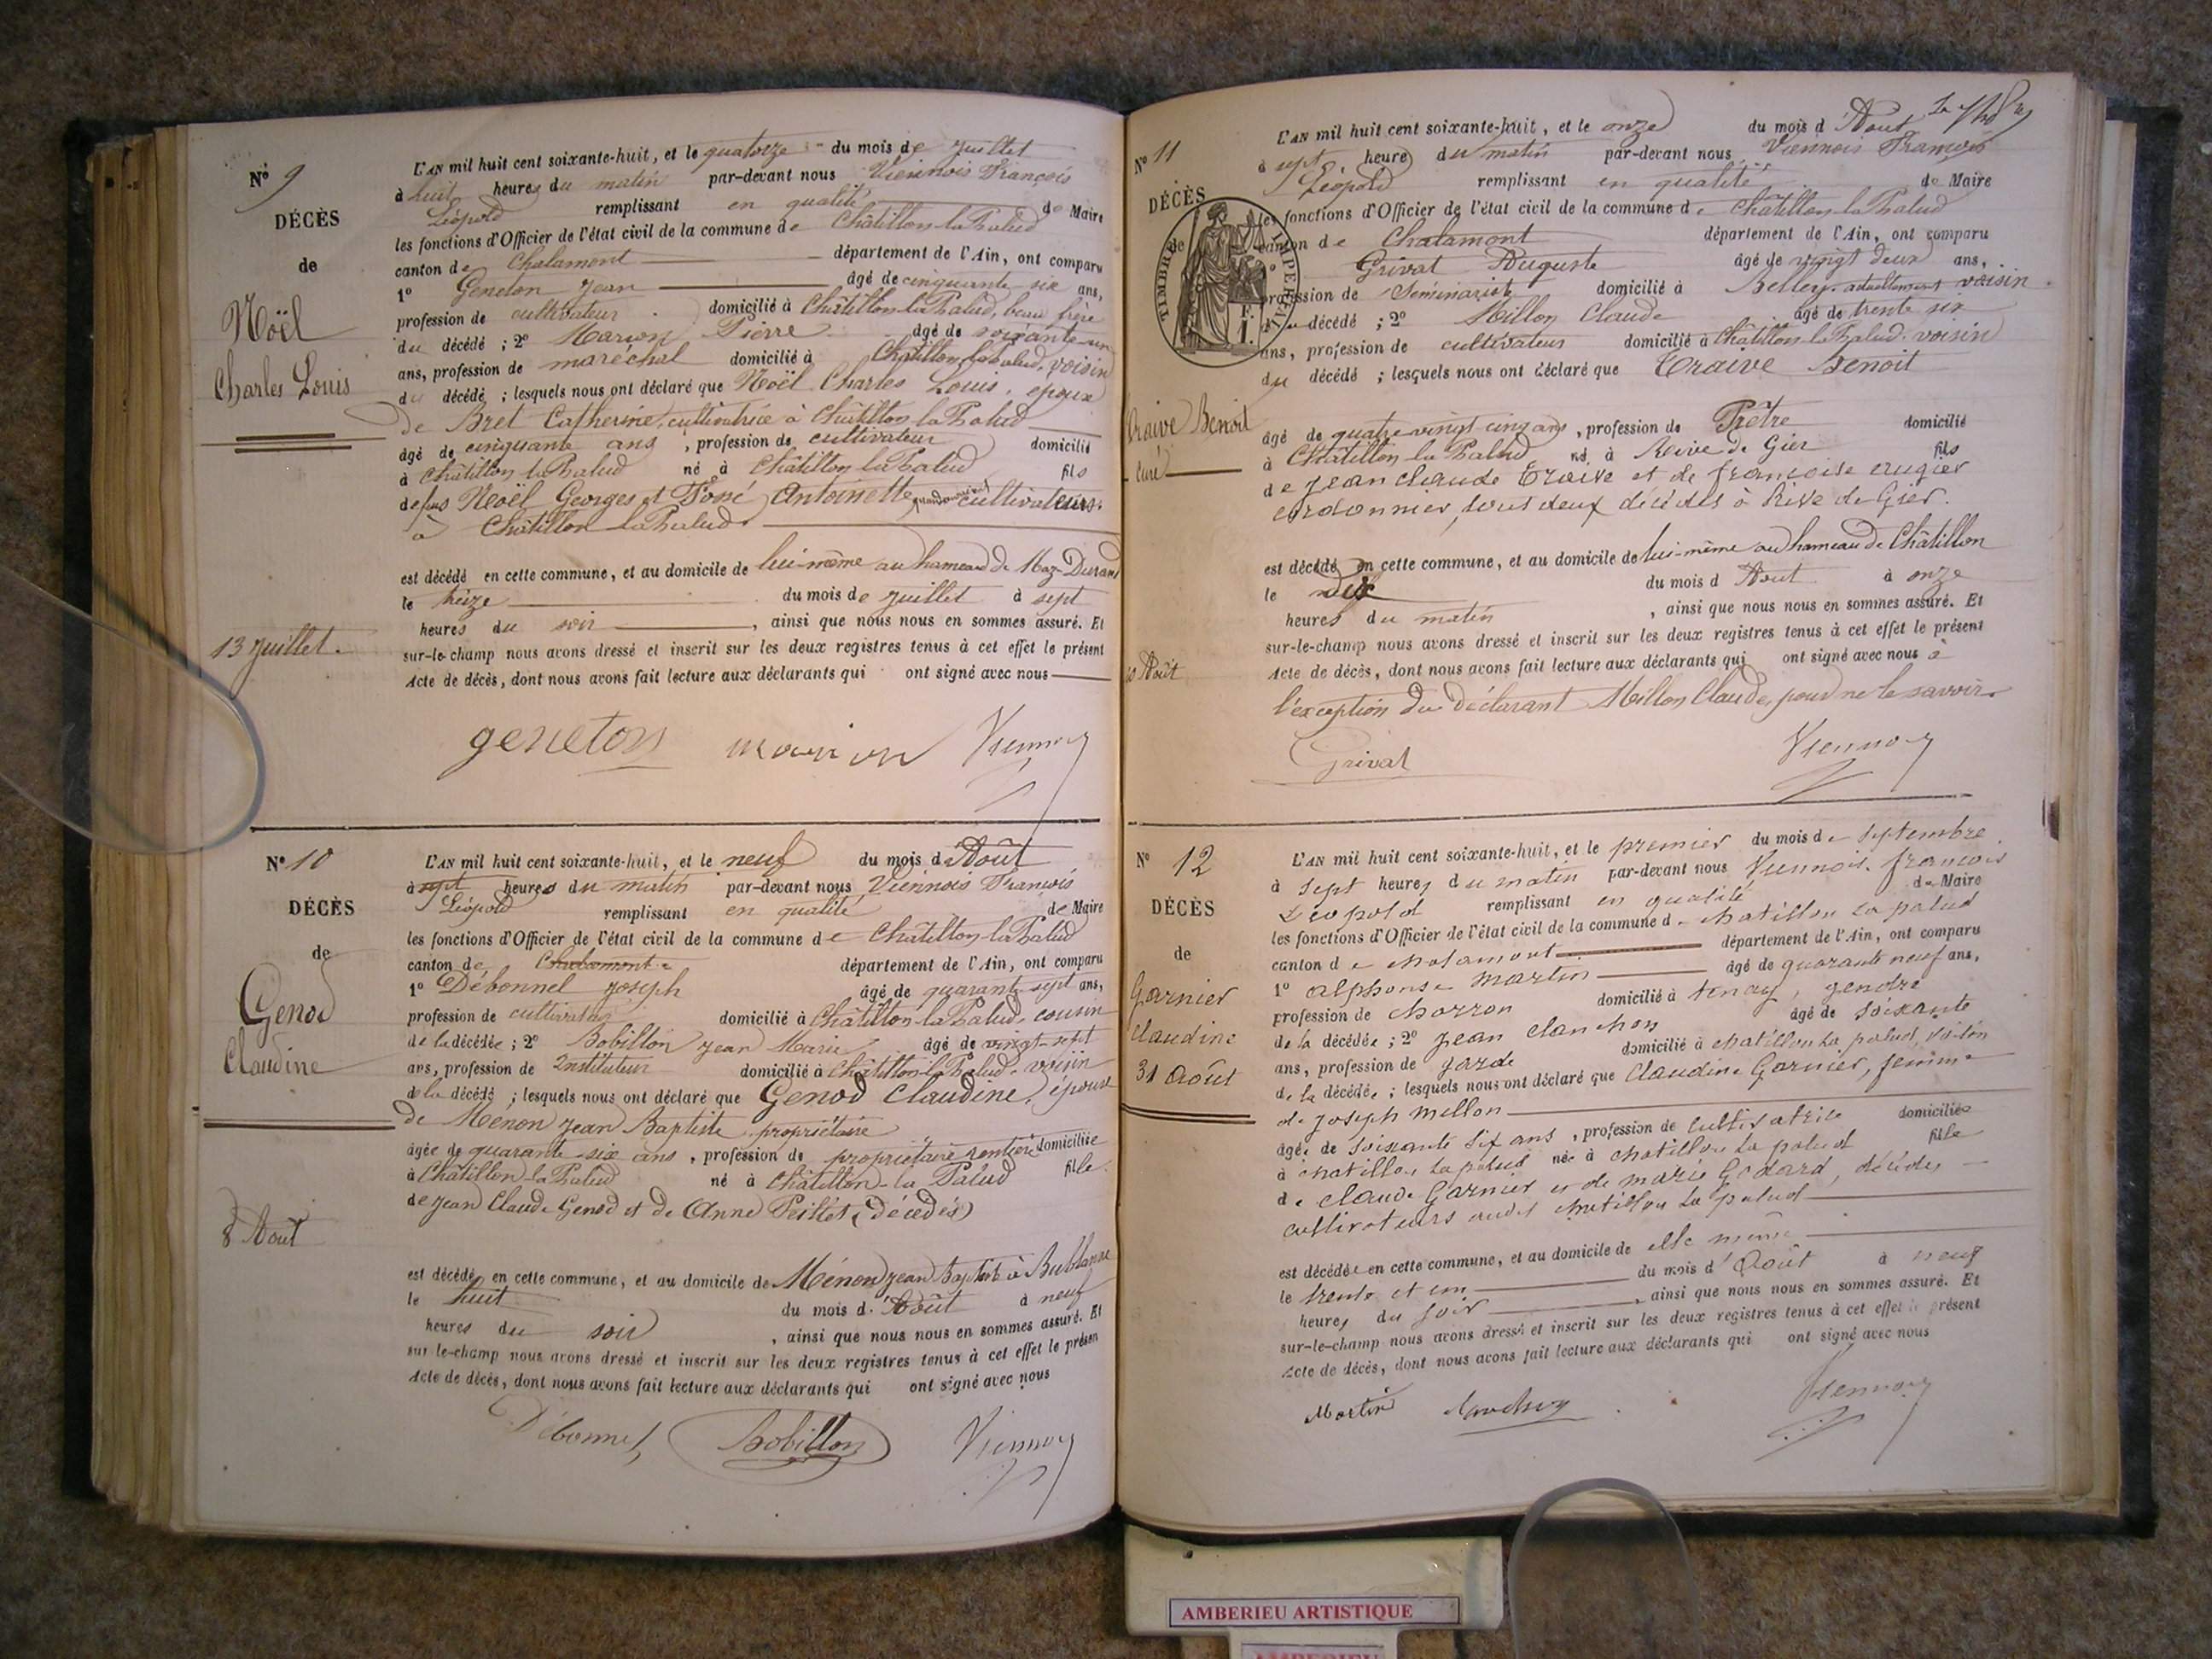 Nº 9
DÉCÈS
de
Noël
Charles Louis
13 Juillet.
L'AN mil huit cent soixante-huit, et le quatorze du mois de Juillet
à huit heures du matin par-devant nous Viennois François
Léopold remplissant en qualité de Maire
les fonctions d'Officier de l'état civil de la commune de Châtillon la Palud
canton de Chalamont département de l'Ain, ont comparu
1º Geneton Jean âgé de cinquante six ans,
profession de cultivateur domicilié à Châtillon la Palud, beau frère
du décédé ; 2º Marion Pierre âgé de soixante un
ans, profession de maréchal domicilié à Châtillon la Palud, voisin
du décédé ; lesquels nous ont déclaré que Noël Charles Louis, époux
de Bret Catherine, cultivatrice à Châtillon la Palud
âgé de cinquante ans, profession de cultivateur domicilié
à Châtillon la Palud né à Châtillon la Palud fils
de feus Noël Georges et Antoinette cultivateurs
à Châtillon la Palud.
est décédé en cette commune, et au domicile de lui-même au hameau de Maz-Durand
le treize du mois de Juillet à sept
heures du soir, ainsi que nous nous en sommes assuré. Et
sur-le-champ nous avons dressé et inscrit sur les deux registres tenus à cet effet le présent
Acte de décès, dont nous avons fait lecture aux déclarants qui ont signé avec nous
geneton marion Viennois
Nº 10
DÉCÈS
de
Genod
Claudine
8 Aout
L'AN mil huit cent soixante-huit, et le neuf du mois d'Août
à sept heures du matin par-devant nous Viennois François
Léopold remplissant en qualité de Maire
les fonctions d'Officier de l'état civil de la commune de Châtillon la Palud
canton de Chalamont département de l'Ain, ont comparu
1º Débonnel Joseph âgé de quarante sept ans,
profession de cultivateur domicilié à Châtillon la Palud, cousin
de la décédée ; 2º Bobillon Jean Marie âgé de vingt-sept
ans, profession de Instituteur domicilié à Châtillon la Palud, voisin
de la décédé ; lesquels nous ont déclaré que Genod Claudine, épouse
de Ménon Jean Baptiste propriétaire
âgée de quarante-six ans, profession de propriétaire rentière domiciliée
à Châtillon-la Palud né à Châtillon-la Palud fille
de Jean Claude Genod et de Anne Peillet (décédés)
est décédé en cette commune, et au domicile de Ménon Jean Baptiste à Bublanne
le huit du mois d'Août à neuf
heures du soir, ainsi que nous nous en sommes assuré. Et
sur-le-champ nous avons dressé et inscrit sur les deux registres tenus à cet effet le présen
Acte de décès, dont nous avons fait lecture aux déclarants qui ont signé avec nous
Débonnel Bobillon Viennois
Nº 11
DÉCÈS
de
TIMBRE IMPERIAL
1 F.
Traive Benoit
curé
10 Août
L'AN mil huit cent soixante-huit, et le onze du mois d'Aout
à sept heure du matin par-devant nous Viennois François
Léopold remplissant en qualité de Maire
les fonctions d'Officier de l'état civil de la commune de Châtillon la Palud
canton de Chalamont département de l'Ain, ont comparu
1º Grivat Auguste âgé de vingt deux ans,
profession de Séminariste domicilié à Belley. actuellement voisin
du décédé ; 2º Millon Claude âgé de trente six
ans, profession de cultivateur domicilié à Châtillon la Palud. voisin
du décédé ; lesquels nous ont déclaré que Traive Benoit
âgé de quatre vingt cinq ans, profession de Prêtre domicilié
à Châtillon la Palud né à Reive de Gier fils
de jean claude Traive et de françoise crugier
cordonnier, tous deux décédés à Rive de Gier.
est décédé en cette commune, et au domicile de lui-même au hameau de Châtillon
le dix du mois d'Aout à onze
heures du matin, ainsi que nous nous en sommes assuré. Et
sur-le-champ nous avons dressé et inscrit sur les deux registres tenus à cet effet le présent
Acte de décès, dont nous avons fait lecture aux déclarants qui ont signé avec nous à
l'exception du déclarant Millon Claude, pour ne le savoir.
Grivat Viennois
Nº 12
DÉCÈS
de
Garnier
Claudine
31 Août
L'AN mil huit cent soixante-huit, et le premier du mois de Septembre
à sept heures du matin par-devant nous Viennois. françois
Léopold remplissant en qualité de Maire
les fonctions d'Officier de l'état civil de la commune de chatillon la palud
canton de chalamont département de l'Ain, ont comparu
1º alphonse martin âgé de quarante neuf ans,
profession de charron domicilié à tenay, gendre
de la décédée ; 2º jean clanchon âgé de soixante
ans, profession de garde domicilié à chatillon la palud, voisin
de la décédée ; lesquels nous ont déclaré que Claudine Garnier, femme
de joseph millon
âgée de soixante six ans, profession de cultivatrice domiciliée
à chatillon la palud née à chatillon la palud fille
de claude Garnier et de marie Godard, décédés
cultivateurs audit chatillon la palud
est décédée en cette commune, et au domicile de elle même
le trente et un du mois d'Août à neuf
heures du soir, ainsi que nous nous en sommes assuré. Et
sur-le-champ nous avons dressé et inscrit sur les deux registres tenus à cet effet le présent
Acte de décès, dont nous avons fait lecture aux déclarants qui ont signé avec nous
Martin Viennois
AMBERIEU ARTISTIQUE
AMBERIEU